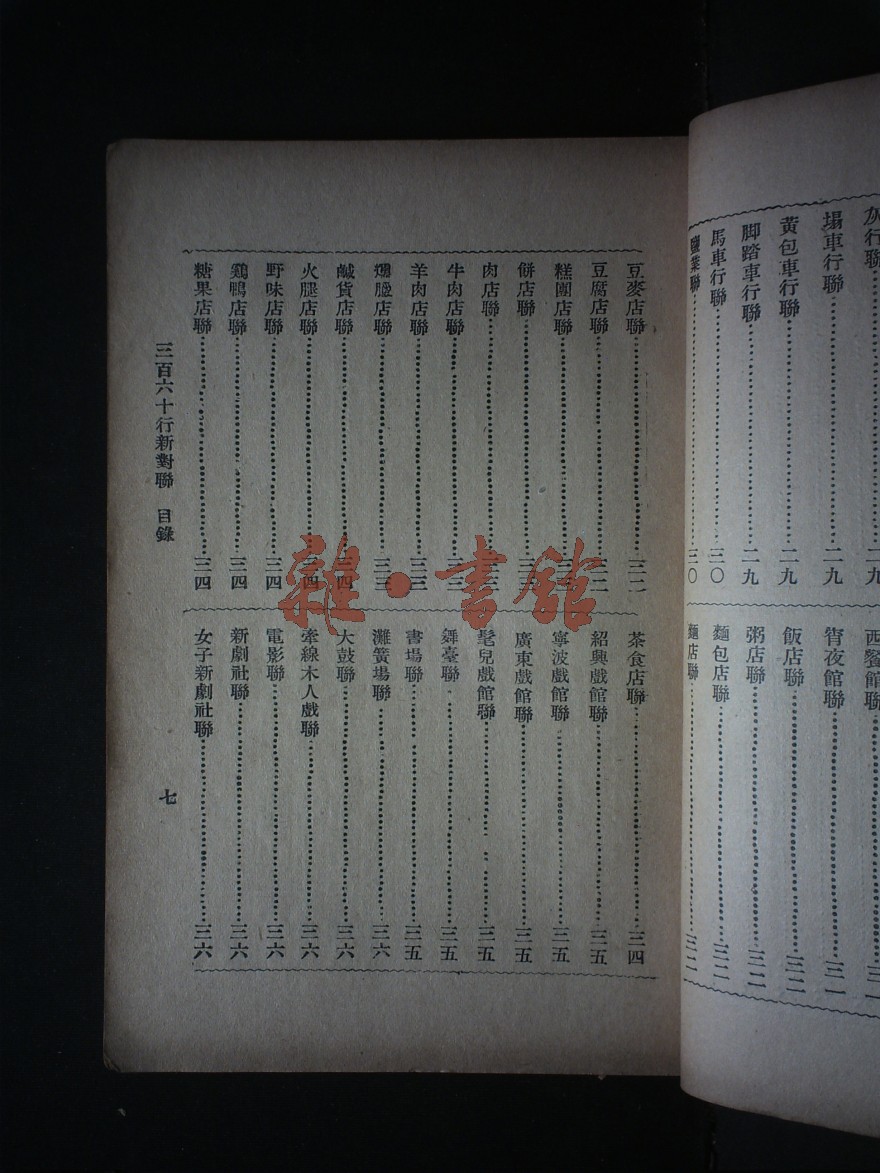 灰行聯……二九
塌車行聯……二九
黃包車行聯……二九
脚踏車行聯……二九
馬車行聯……三〇
業聯……三〇
西餐館聯……三一
宵夜館聯……三一
飯店聯……三二
粥店聯……三二
麵包店聯……三二
麵店聯……三二
豆麥店聯……三二
豆腐店聯……三二
糕團店聯……
餅店聯……
肉店聯……
牛肉店聯……三三
羊肉店聯……三三
店聯……三三
鹹貨店聯……三四
火腿店聯……三四
野味店聯……三四
鷄鴨店聯……三四
糖果店聯……三四
茶食店聯……三四
紹興戲館聯……三五
寧波戲館聯……三五
廣東戲館聯……三五
髦兒戲館聯……三五
舞臺聯……三五
書場聯……三五
灘簧場聯……三六
大鼓聯……三六
牽線木人戲聯……三六
電影聯……三六
新劇社聯……三六
女子新劇社聯……三六
三百六十行新對聯 目錄
七
雜·書館